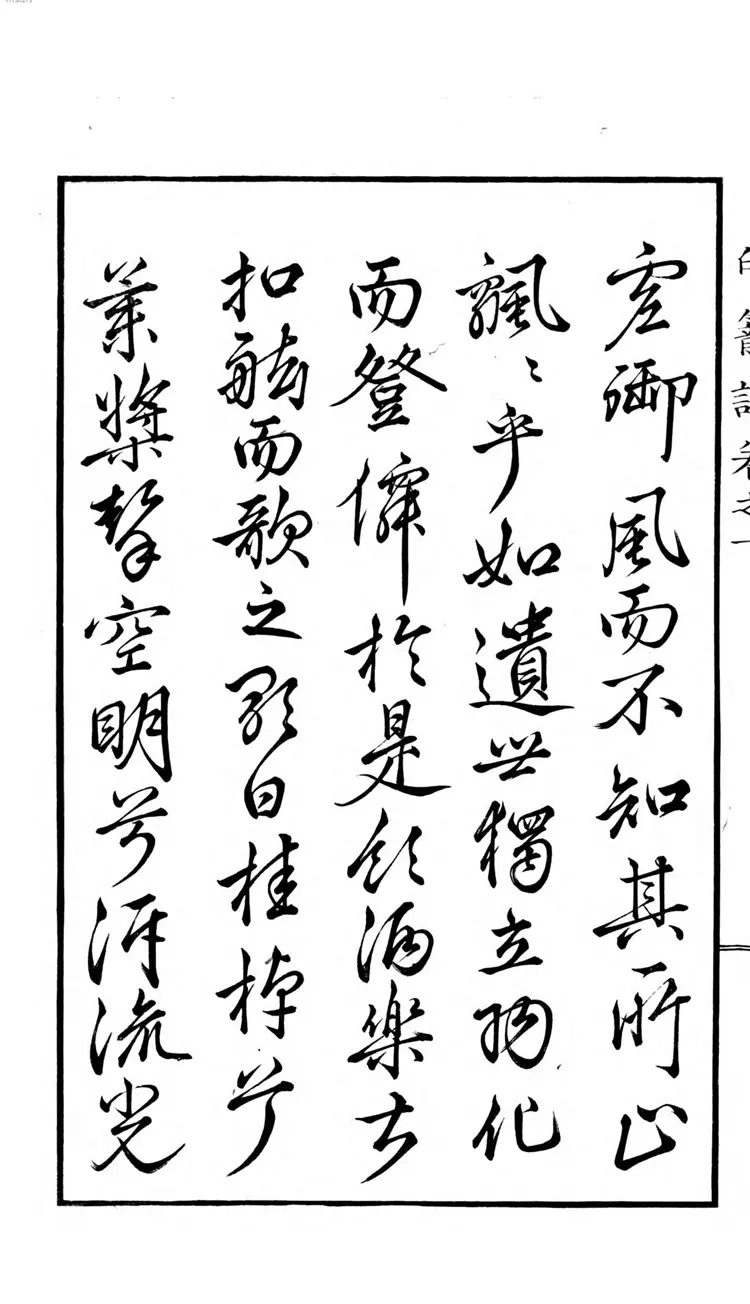 虛御風而不知其所止
飄〻乎如遺世獨立羽化
而登僊於是飲酒樂甚
扣舷而歌之歌曰桂棹兮
蘭槳擊空明兮泝流光